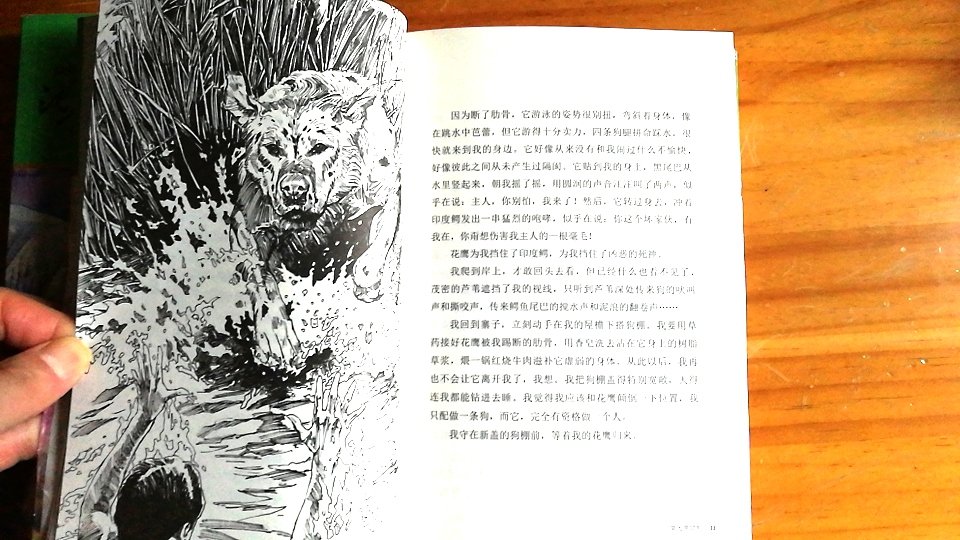 因为断了肋骨，它游泳的姿势很别扭，弯斜着身体，像
在跳水中芭蕾，但它游得十分卖力，四条狗腿拼命踩水，很
快就来到我的身边。它好像从来没有和我闹过什么不愉快，
好像彼此之间从未产生过隔阂。它贴到我的身上，黑尾巴从
水里竖起来，朝我摇了摇，用圆润的声音汪汪叫了两声，似
乎在说：主人，你别怕，我来了！然后，它转过身去，冲着
印度鳄发出一串猛烈的咆哮，似乎在说：你这个坏家伙，有
我在，你甭想伤害我主人的一根毫毛！
花鹰为我挡住了印度鳄，为我挡住了凶恶的死神。
我爬到岸上，才敢回头去看，但已经什么也看不见了，
茂密的芦苇遮挡了我的视线，只听到芦苇深处传来狗的吠叫
声和撕咬声，传来鳄鱼尾巴的搅水声和泥浪的翻卷声……
我回到寨子，立刻动手在我的屋檐下搭狗棚。我要用草
药接好花鹰被我踢断的肋骨，用香皂洗去沾在它身上的树脂
草浆，煨一锅红烧牛肉滋补它虚弱的身体。从此以后，我再
也不会让它离开我了，我想。我把狗棚盖得特别宽敞，大得
连我都能钻进去睡。我觉得我应该和花鹰颠倒一下位置，我
只配做一条狗，而它，完全有资格做一个人。
我守在新盖的狗棚前，等着我的花鹰归来。